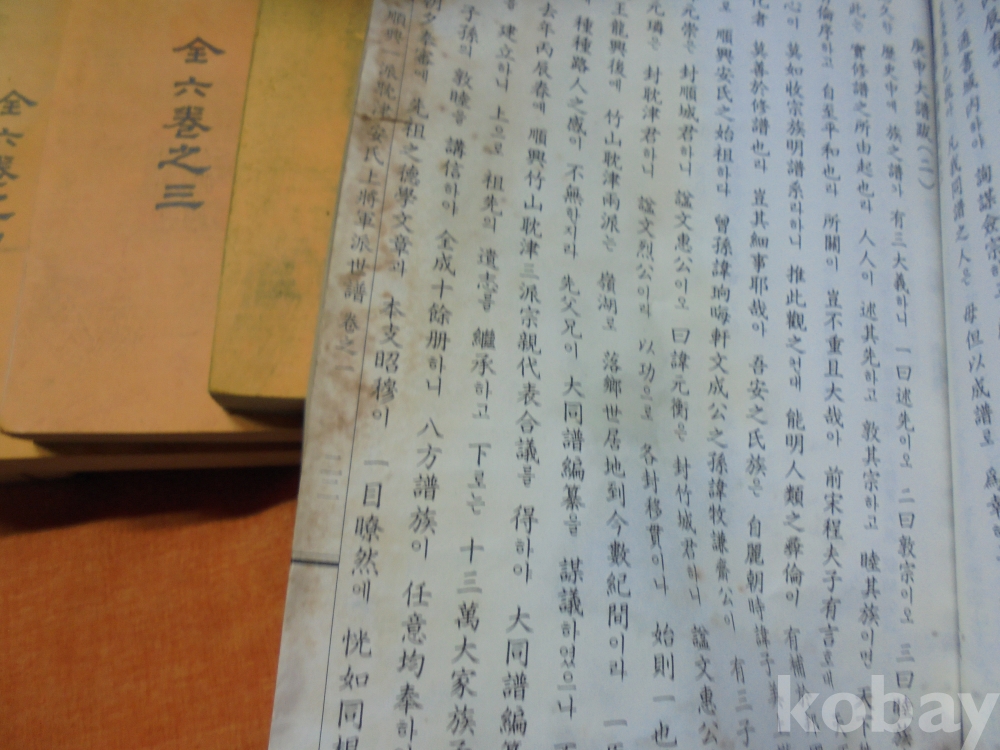 詢謀僉宗하
凡我同譜之人은 毋但以成譜로
庚申大譜跋(二)
歷史中에 族之譜가 有三大義하니 一曰述先이오 二曰敦宗이오 三曰
此는 實修譜之所由起也라 人人이 述其先하고 敦其宗하고 睦其族이면 天下
倫序하고 自至平和也라 所關이 豈不重且大哉아 前宋程夫子有言호대
心이 莫如收宗族明譜系라하니 推此觀之컨대 能明人類之彛倫이 有補
化者 莫善於修譜也라 豈其細事耶哉아 吾安之氏族은 自麗朝時 諱子
로 順興安氏之始祖하다 曾孫諱珦晦軒文成公之孫諱牧謙齋公이 有三子
元崇은 封順城君하니 諡文惠公이오 曰諱元衡은 封竹城君하니 諡文惠公
元璘은 封耽津君하니 諡文烈公이라 以功으로 各封移貫이나 始則一也
王龍興後에 竹山耽津兩派는 嶺湖로 落鄕世居地到今數紀間이라 一
種種路人之感이 不無한지라 先父兄이 大同譜編纂을 謀議하였으나
去年丙辰春에 順興竹山耽津三派宗親代表合議를 得하야 大同譜編
를 建立하니 上으로 祖先의 遺志를 繼承하고 下로는 十三萬大家族
子孫의 敦睦을 講信하야 全成十餘册하니 八方譜族이 任意均奉하
朝夕奉審에 先祖之德學文章과 本支昭穆이 一目瞭然에 恍如同
順興一派耽津安氏上將軍派世譜 卷之一 一二二
全六卷之三
全六卷之
kobay